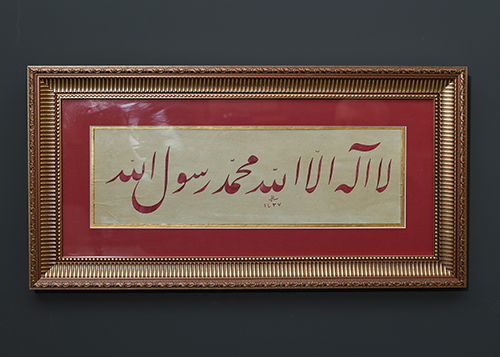 لا اله الا الله محمد رسول الله
١٤٣٧